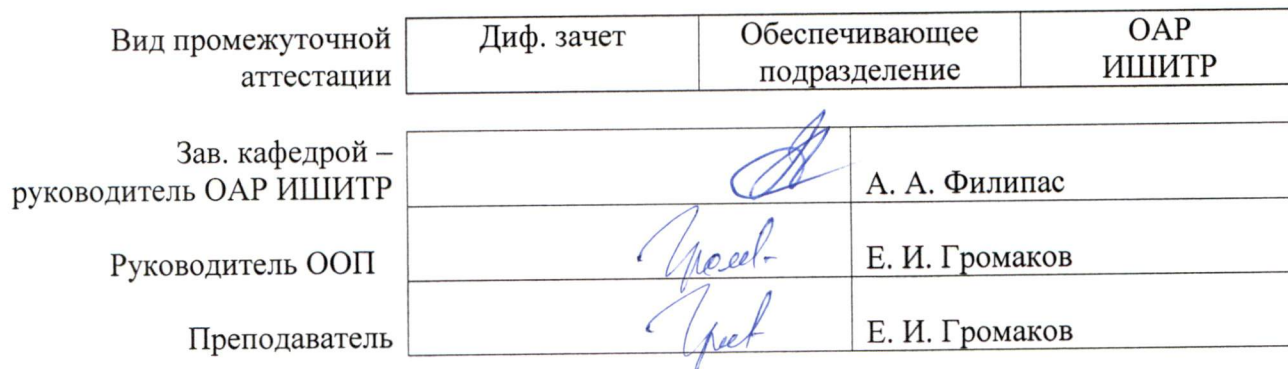 Вид промежуточной аттестации
Диф. зачет
Обеспечивающее подразделение
ОАР ИШИТР
Зав. кафедрой –
руководитель ОАР ИШИТР
А. А. Филипас
Руководитель ООП
Е. И. Громаков
Преподаватель
Е. И. Громаков